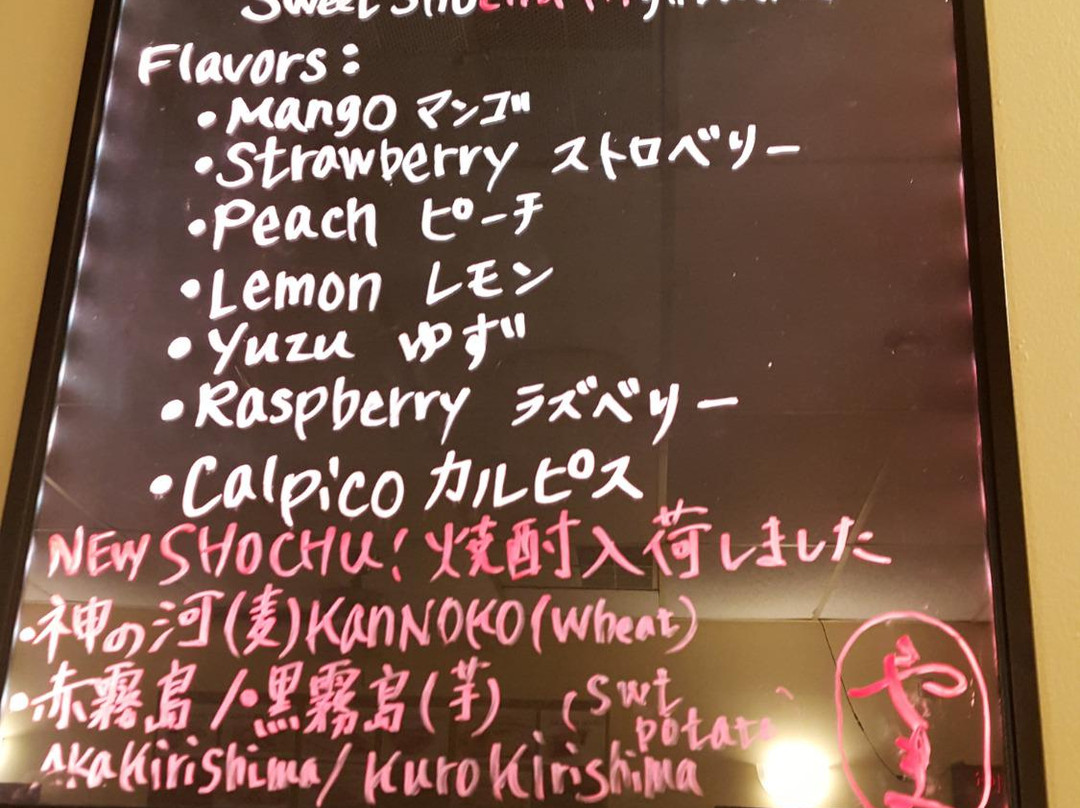 Sweet
Flavors:
• Mango マンゴ
• Strawberry ストロベリー
• Peach ピーチ
• Lemon レモン
• Yuzu ゆず
• Raspberry ラズベリー
• Calpico カルピス
NEW SHOCHU! 焼酎入荷しました
• 神の河(麦)KANNOKO(Wheat)
• 赤霧島/•黒霧島(芋) (Swt
potato
AkaKirishima/KuroKirishima